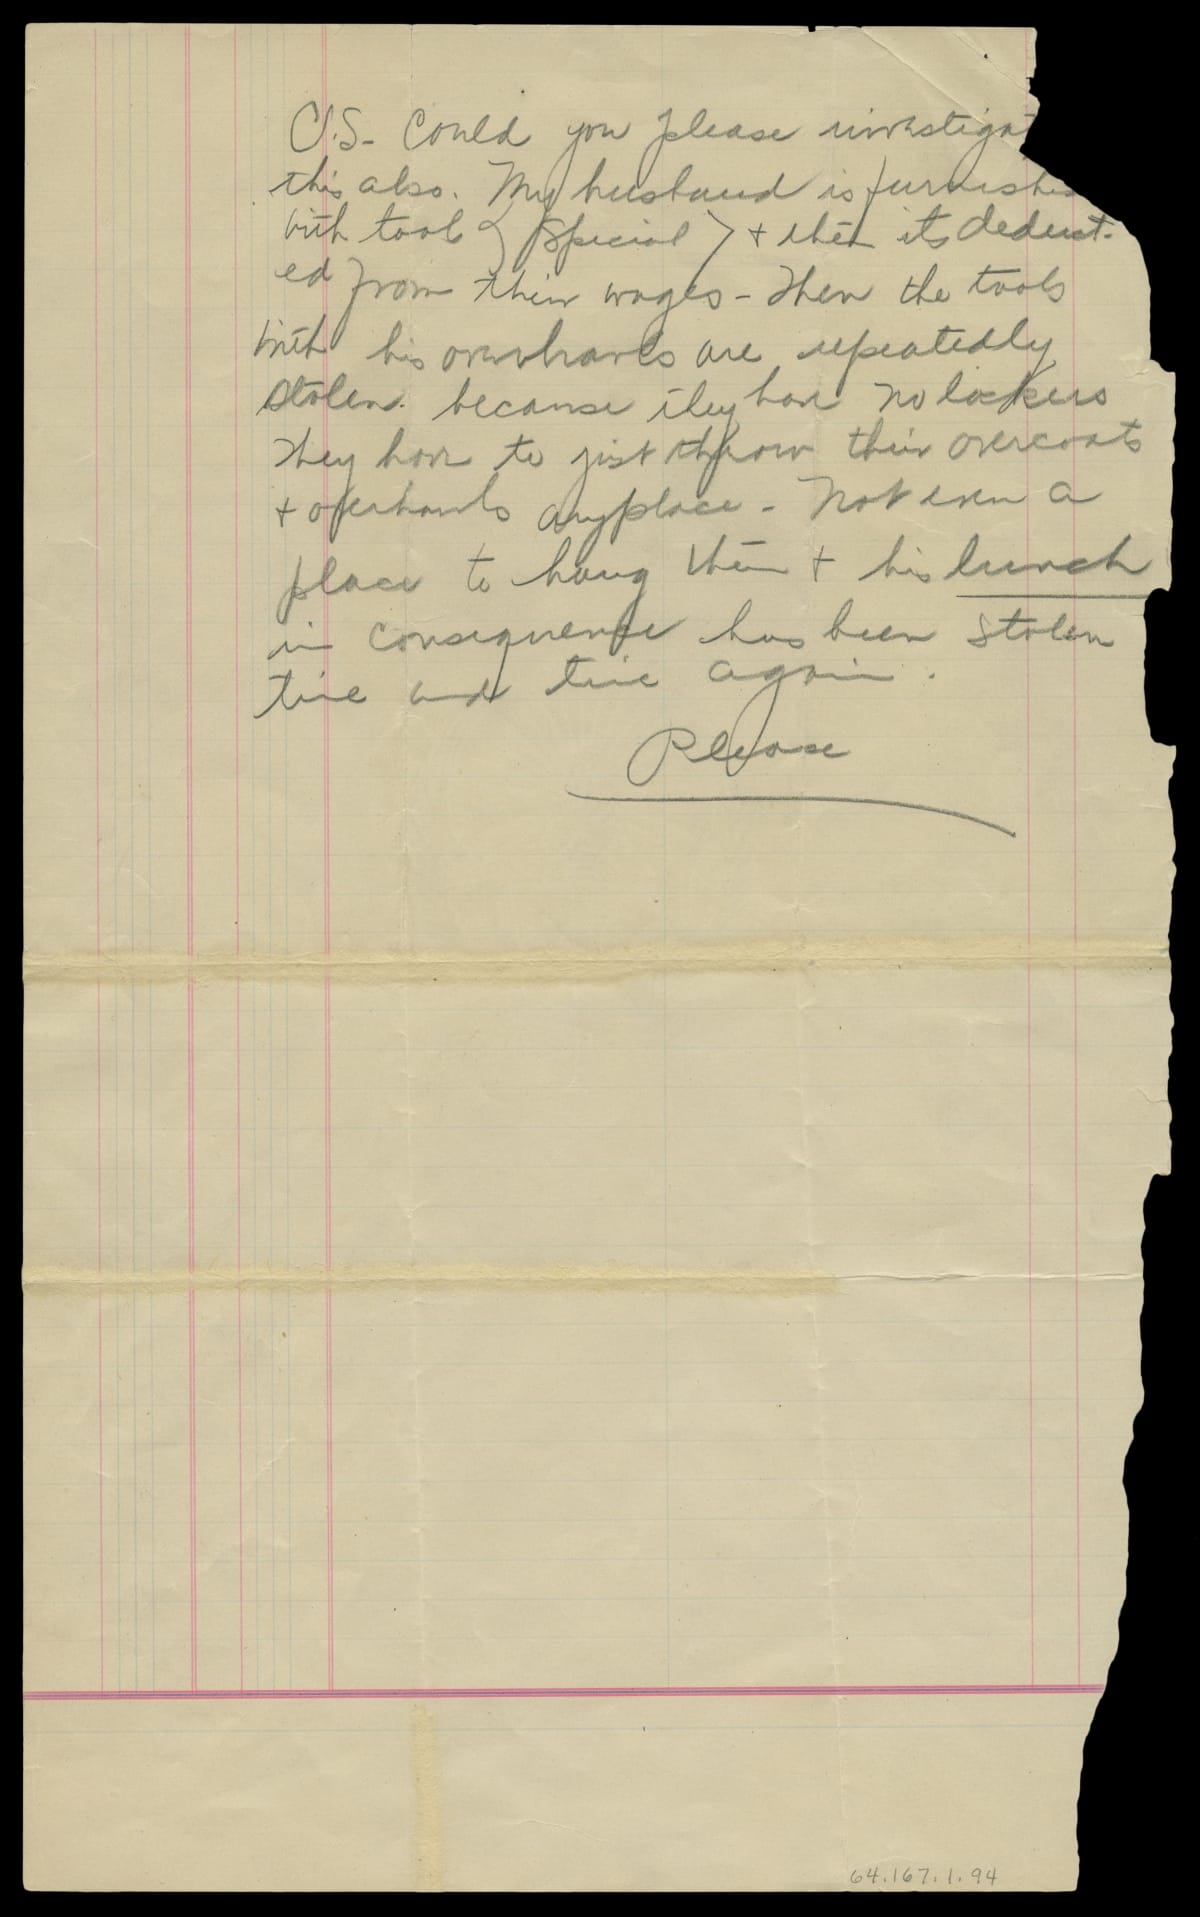 P.S. Could you please investigat
this also. My husband is furnishe
with tools (special) + then its deduct-
ed from their wages - then the tools
with his overhauls are repeatedly
stolen. because they have no lockers
They have to just throw their overcoats
+ overhauls anyplace - Not even a
place to hang them + his lunch
in consequence has been stolen
time and time again.
Please
64.167.1.94